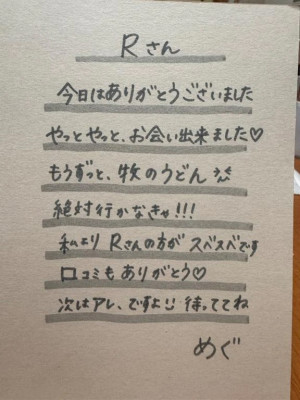 Rさん
今日はありがとうございました
やっとやっと、お会い出来ました♡
もうずっと、牧のうどん
絶対行かなきゃ!!!
私より Rさんの方が スベスベです
口コミも ありがとう♡
次はアレ、ですよ 待っててね
めぐ